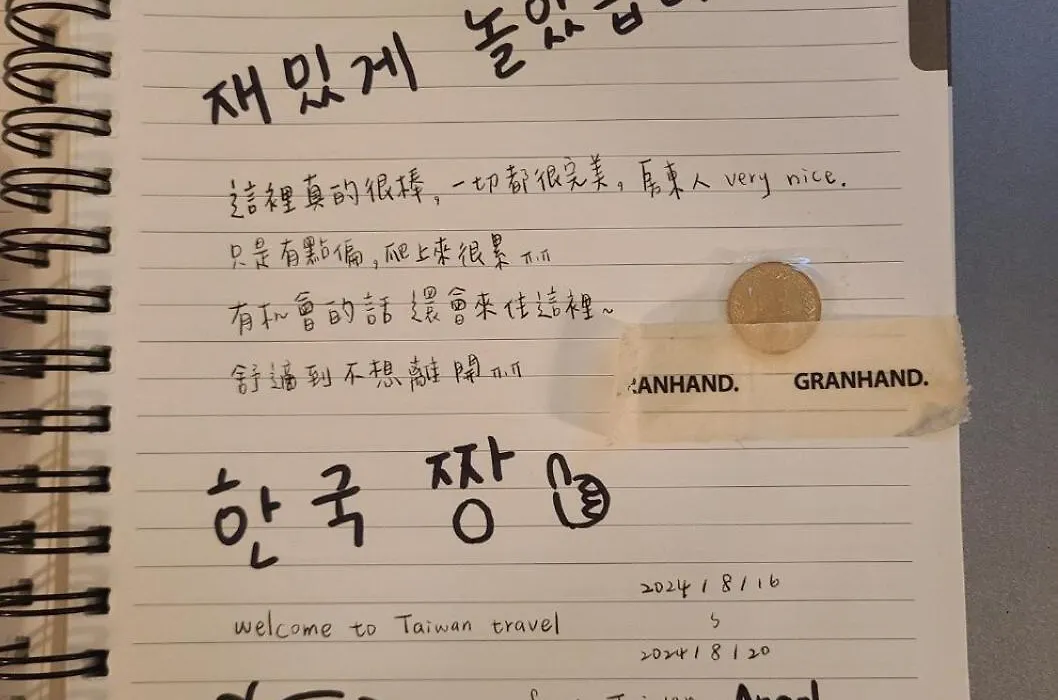 재밌게 놀았습니
這裡真的很棒,一切都很完美,房東人 very nice.
只是有點偏,爬上來很累ㅠㅠ
有机會的話還會來住這裡~
舒適到不想離開ㅠㅠ
RANHAND. GRANHAND.
한국 짱
2024/8/16
welcome to Taiwan travel
2024/8/20
from Taiwan